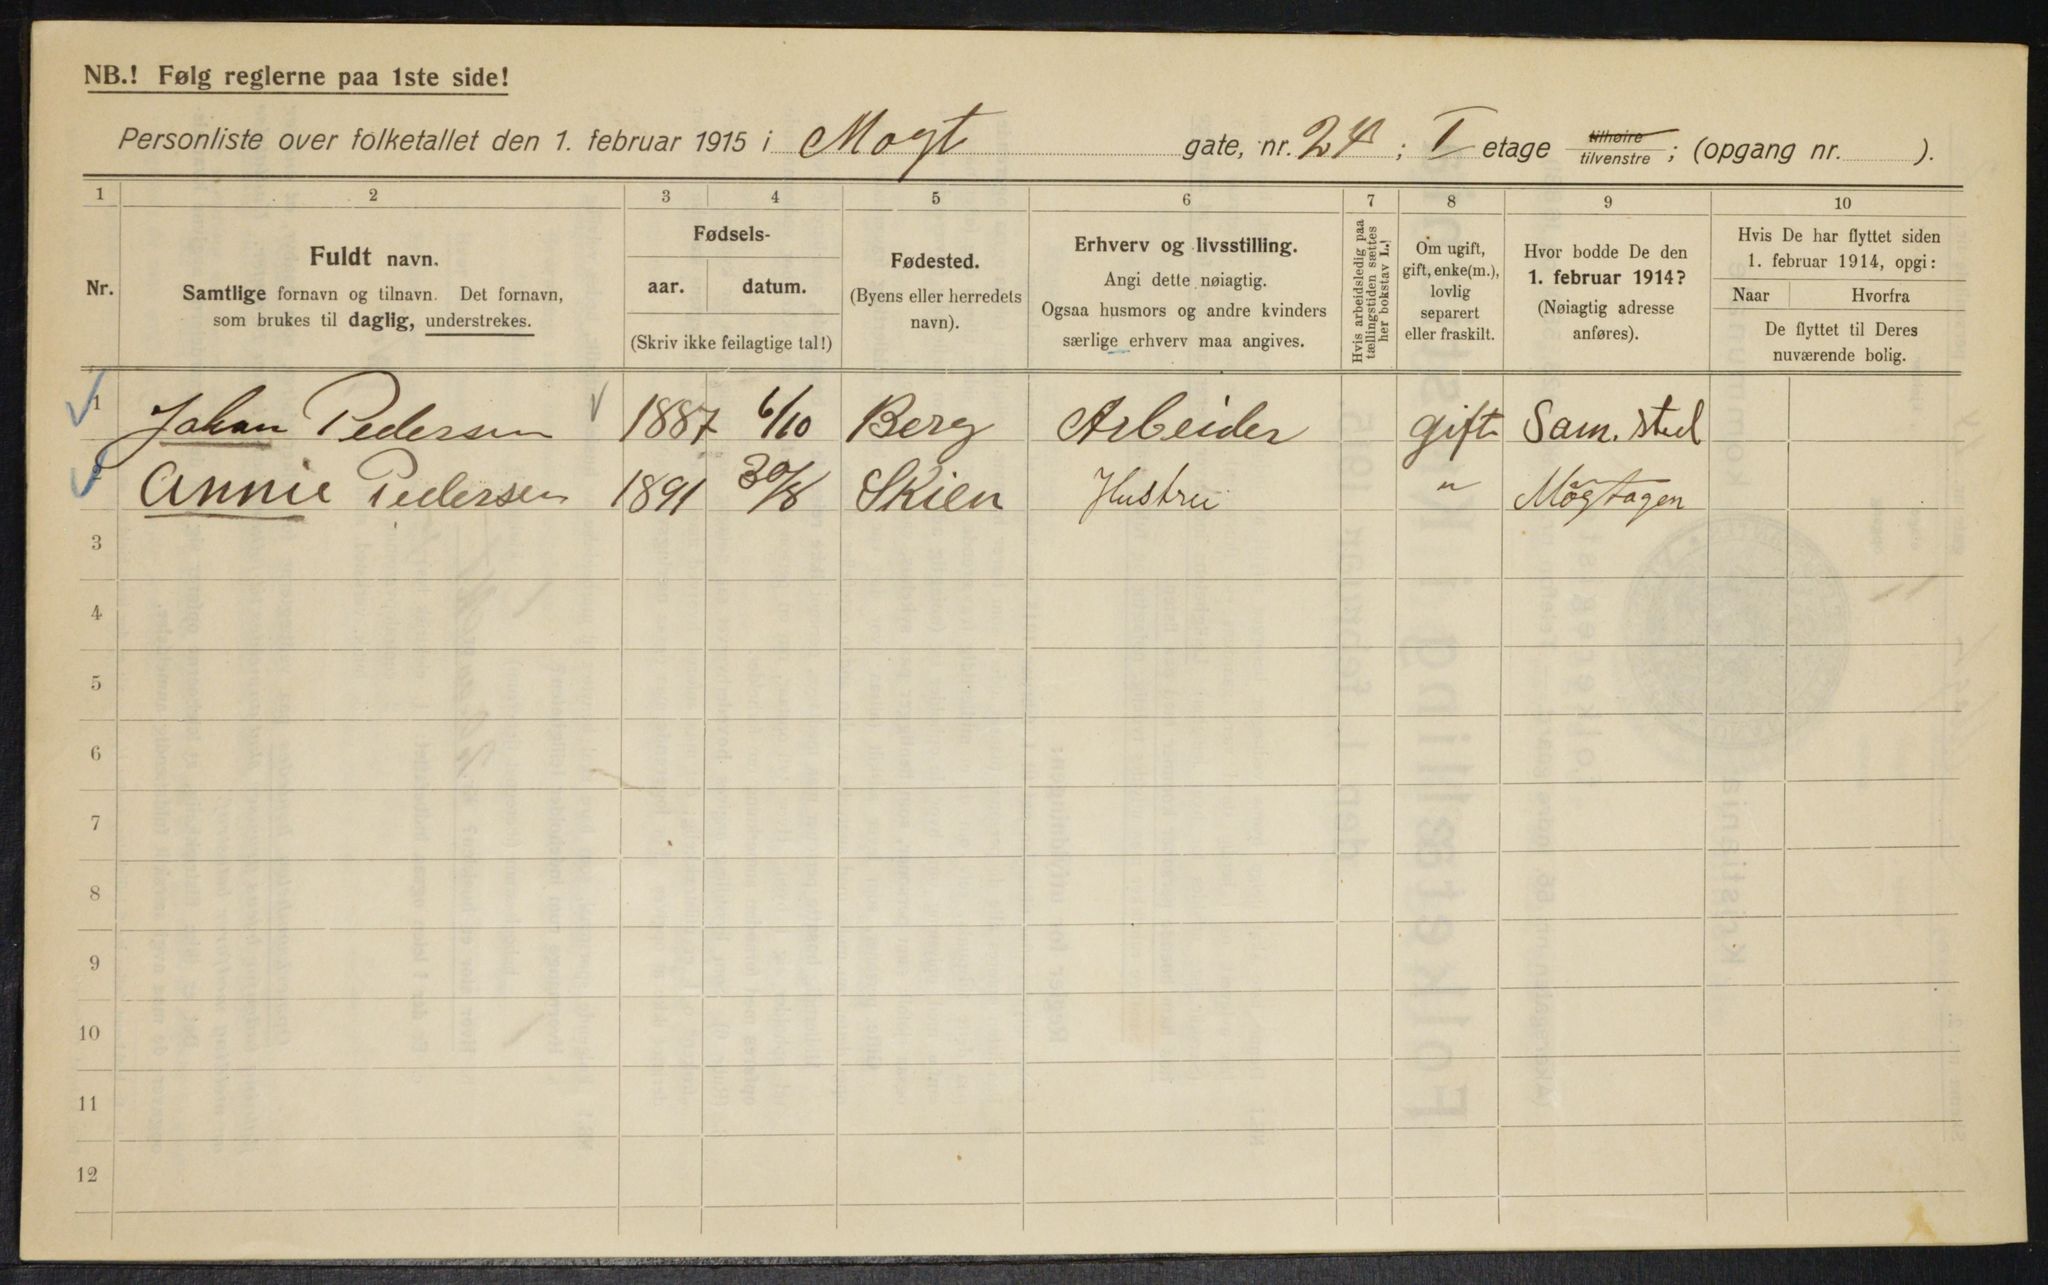 NB.! Følg reglerne paa 1ste side!
Personliste over folketallet den 1. februar 1915 i Mogt gate, nr. 24 ; I etage tilhøire / tilvenstre ; (opgang nr. ).
1 2 3 4 5 6 7 8 9 10
Nr.
Fuldt navn.
Samtlige fornavn og tilnavn. Det fornavn,
som brukes til daglig, understrekes.
Fødsels-
aar. datum.
(Skriv ikke feilagtige tal!)
Fødested.
(Byens eller herredets
navn).
Erhverv og livsstilling.
Angi dette nøiagtig.
Ogsaa husmors og andre kvinders
særlige erhverv maa angives.
Hvis arbeidsledig paa
tællingstiden sættes
her bokstav L.!
Om ugift,
gift, enke(m.),
lovlig
separert
eller fraskilt.
Hvor bodde De den
1. februar 1914?
(Nøiagtig adresse
anføres).
Hvis De har flyttet siden
1. februar 1914, opgi:
Naar Hvorfra
De flyttet til Deres
nuværende bolig.
1 Johan Pedersen 1887 6/10 Berg Arbeider gift Sam. sted
2 Annie Pedersen 1891 30/8 Skien Hustru " Mogtagen
3
4
5
6
7
8
9
10
11
12